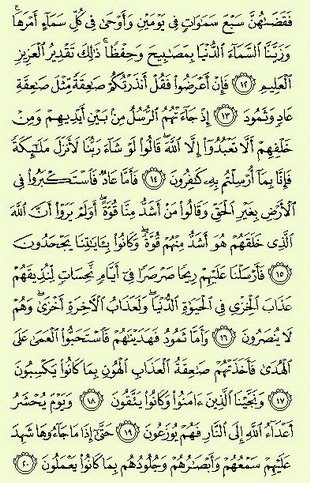 فَقَضَىٰهُنَّ سَبْعَ سَمَٰوَاتٍ فِى يَوْمَيْنِ وَأَوْحَىٰ فِى كُلِّ سَمَآءٍ أَمْرَهَا ۚ
وَزَيَّنَّا ٱلسَّمَآءَ ٱلدُّنْيَا بِمَصَٰبِيحَ وَحِفْظًا ۚ ذَٰلِكَ تَقْدِيرُ ٱلْعَزِيزِ
ٱلْعَلِيمِ ١٢ فَإِنْ أَعْرَضُوا۟ فَقُلْ أَنذَرْتُكُمْ صَٰعِقَةً مِّثْلَ صَٰعِقَةِ
عَادٍ وَثَمُودَ ١٣ إِذْ جَآءَتْهُمُ ٱلرُّسُلُ مِنۢ بَيْنِ أَيْدِيهِمْ وَمِنْ
خَلْفِهِمْ أَلَّا تَعْبُدُوٓا۟ إِلَّا ٱللَّهَ ۖ قَالُوا۟ لَوْ شَآءَ رَبُّنَا لَأَنزَلَ مَلَٰٓئِكَةً
فَإِنَّا بِمَآ أُرْسِلْتُم بِهِۦ كَٰفِرُونَ ١٤ فَأَمَّا عَادٌ فَٱسْتَكْبَرُوا۟ فِى
ٱلْأَرْضِ بِغَيْرِ ٱلْحَقِّ وَقَالُوا۟ مَنْ أَشَدُّ مِنَّا قُوَّةً ۖ أَوَلَمْ يَرَوْا۟ أَنَّ ٱللَّهَ
ٱلَّذِى خَلَقَهُمْ هُوَ أَشَدُّ مِنْهُمْ قُوَّةً ۖ وَكَانُوا۟ بِـَٔايَٰتِنَا يَجْحَدُونَ
١٥ فَأَرْسَلْنَا عَلَيْهِمْ رِيحًا صَرْصَرًا فِىٓ أَيَّامٍ نَّحِسَاتٍ لِّنُذِيقَهُمْ
عَذَابَ ٱلْخِزْىِ فِى ٱلْحَيَوٰةِ ٱلدُّنْيَا ۖ وَلَعَذَابُ ٱلْـَٔاخِرَةِ أَخْزَىٰ ۖ وَهُمْ
لَا يُنصَرُونَ ١٦ وَأَمَّا ثَمُودُ فَهَدَيْنَٰهُمْ فَٱسْتَحَبُّوا۟ ٱلْعَمَىٰ عَلَى
ٱلْهُدَىٰ فَأَخَذَتْهُمْ صَٰعِقَةُ ٱلْعَذَابِ ٱلْهُونِ بِمَا كَانُوا۟ يَكْسِبُونَ
١٧ وَنَجَّيْنَا ٱلَّذِينَ ءَامَنُوا۟ وَكَانُوا۟ يَتَّقُونَ ١٨ وَيَوْمَ يُحْشَرُ
أَعْدَآءُ ٱللَّهِ إِلَى ٱلنَّارِ فَهُمْ يُوزَعُونَ ١٩ حَتَّىٰٓ إِذَا مَا جَآءُوهَا شَهِدَ
عَلَيْهِمْ سَمْعُهُمْ وَأَبْصَٰرُهُمْ وَجُلُودُهُم بِمَا كَانُوا۟ يَعْمَلُونَ ٢٠